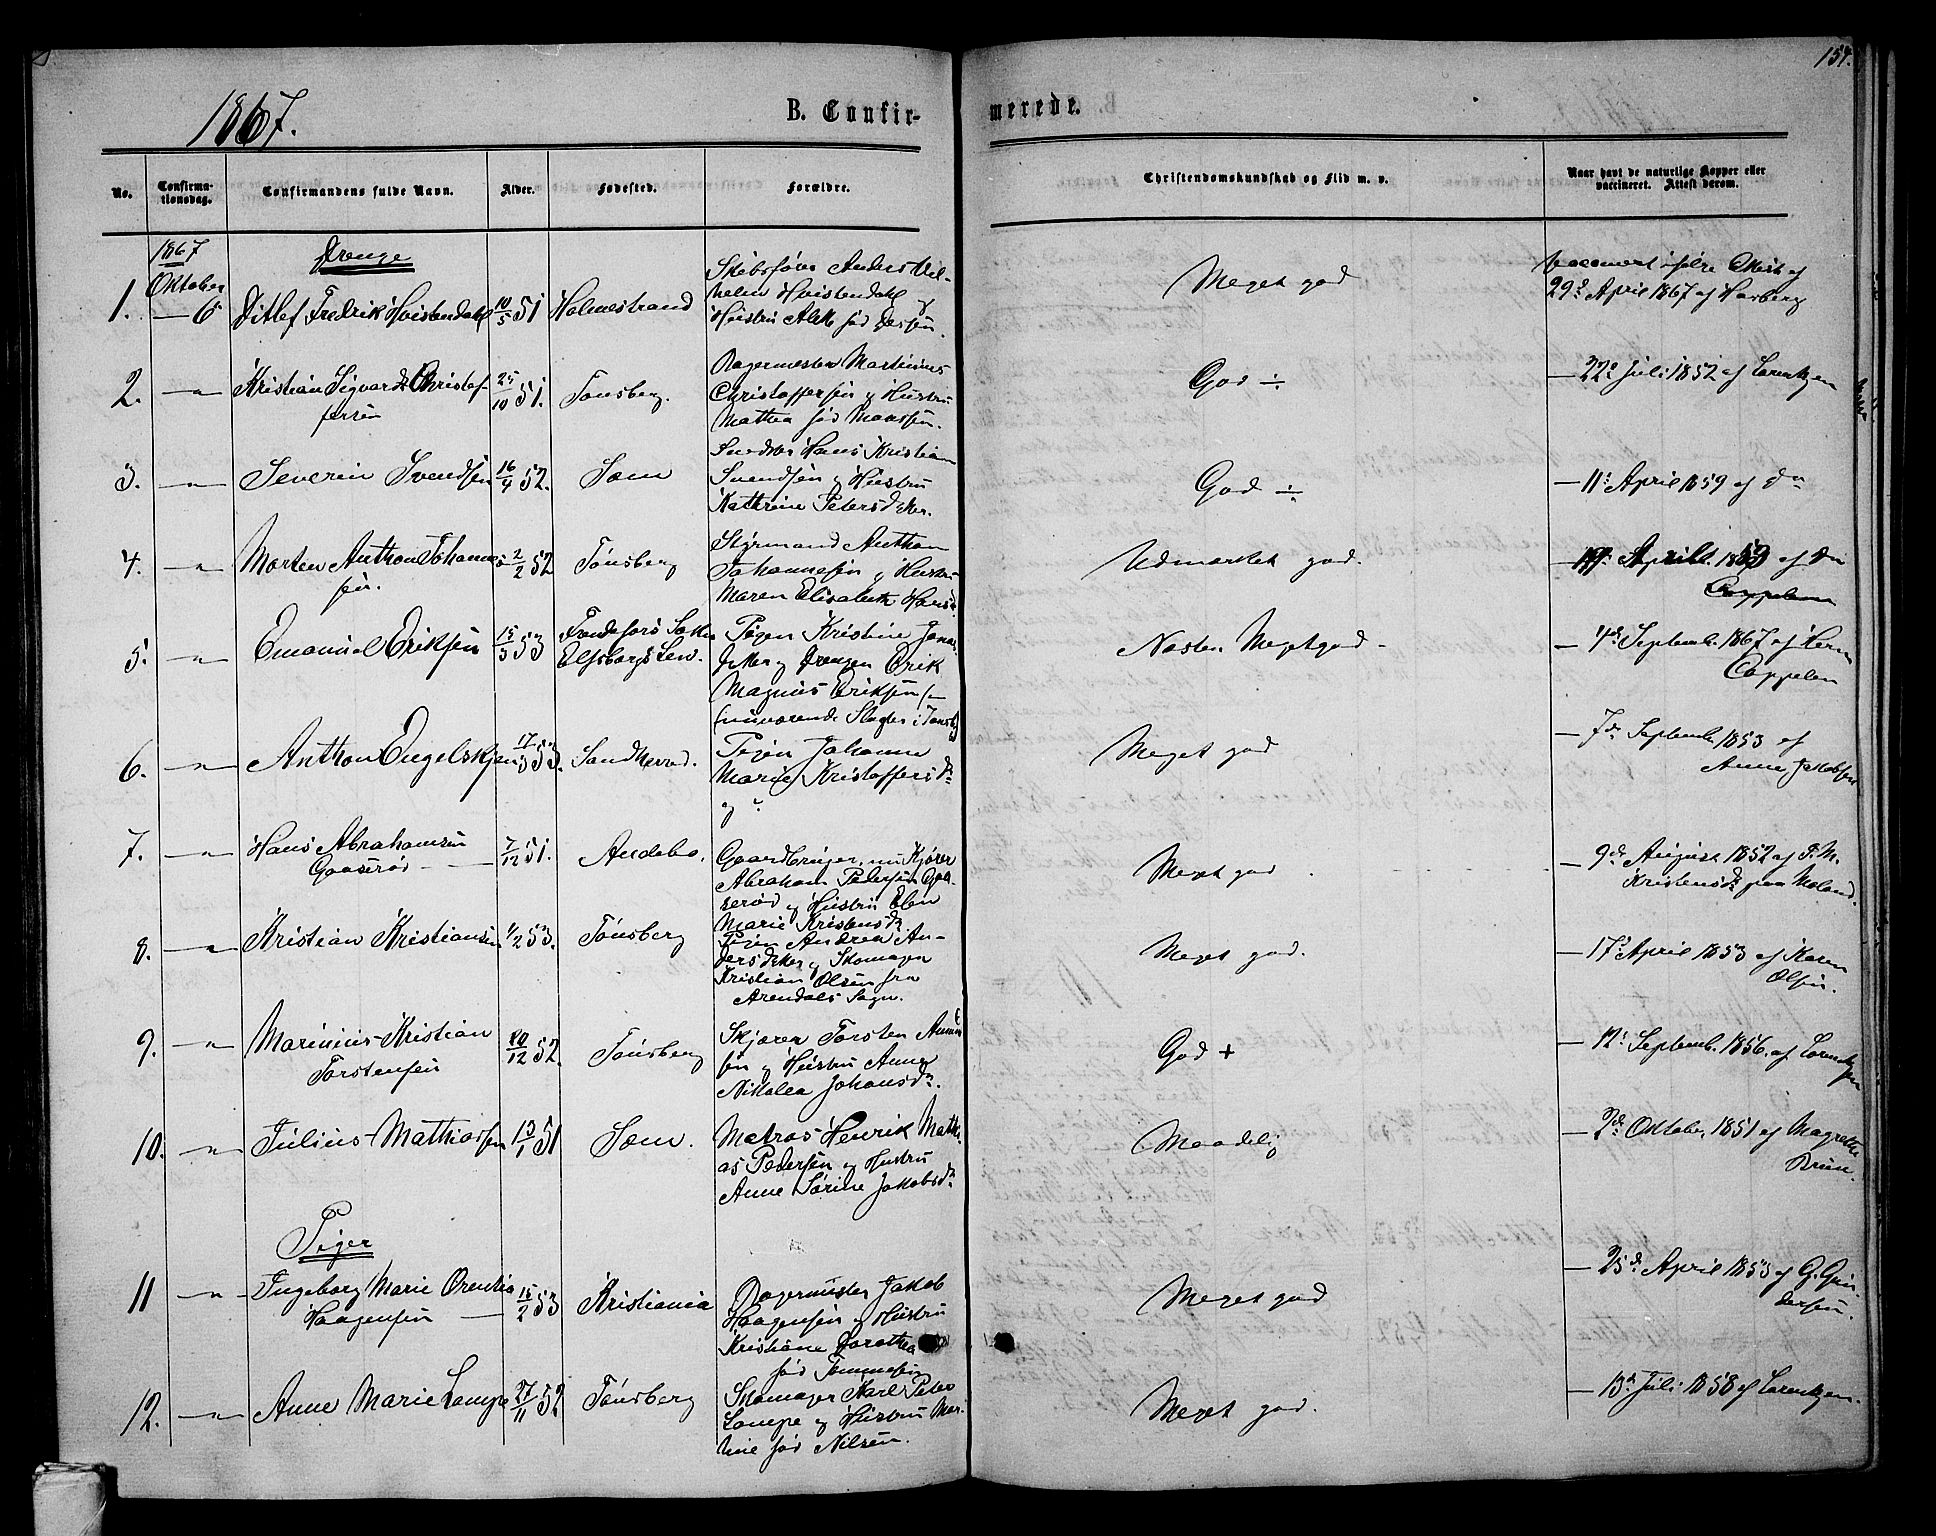 154.
1867.
B. Confir-
merede.
No.
Confirma-
tionsdag.
Confirmandens fulde Navn.
Alder.
Fødested.
Forældre.
Christendomskundskab og Flid m. v.
Naar havt de naturlige Kopper eller
vaccineret. Attest derom.
1867
Oktober
Drenge
1. — 6 Ditlef Fredrik Hvistendahl 10/5 51 Holmestrand
Skibsfører Anders Vil-
helm Hvistendahl og
Hustru
Meget god
29de April 1867 af
2. —"— Kristian Sigvard Christof-
fersen
25/10 51. Tønsberg.
Bagermester Martinius
Christoffersen og Hustru
Mathea fød Monssen.
God ÷
— 22de Juli 1852 af Lorentzen
3. —"— Severin Svendsen 16/4 52. Sæm
Hans Kristian
Svendsen og Hustru
Kathrine Petersdatter.
God ÷
— 11te April 1859 af do
4. —"— Morten Anthon Johanne-
sen.
2/2 52 Tønsberg
Styrmand Anthon
Johannesen og Hustru
Maren Elisabeth Hansd.
Udmærket god.
April af do
Cappelen
5. —"— Emanuel Eriksen 15/3 53
Elfsborgs Len.
Pigen Kristine Jonas-
datter og Drengen Erik
Magnus Eriksen (—
(nuværende Slagter i Tønsbg
Næsten Meget god —
— 4de Septemb. 1867 af Herm
Cappelen
6. —"— Anthon Engelskjøn 17/3 53. Sandherred.
Pigen Johanne
Marie Kristoffersd.
og ?
Meget god
— 7de Septemb. 1853 af
Anne Jakobsen
7. —"— Hans Abrahamsen
Gaaserød —
7/12 51. Andebo.
Gaardbruger, nu Kjører
Abraham Pedersen Gaa-
serød og Hustru Elen
Marie Kristensd.
Meget god
— 9de August 1852 af T. M.
Kristensd. paa Moland.
8. —"— Kristian Kristiansen 4/2 53. Tønsberg
Pigen Andrea An-
dersdatter og Skomager
Kristian Olsen fra
Arendals Sogn.
Meget god.
— 17de April 1853 af Karen
Olsen.
9. —"— Marinius Kristian
Torstensen
20/12 52. Tønsberg
Torsten
sen og Hustru Anne
Nikolea Johansd.
God +
— 12te Septemb. 1856. af Lorent-
zen
10. —"— Julius Mathiassen 13/1 51 Sæm.
Matros Henrik Mathi-
as Pedersen og Hustru
Anne Sørine Jakobsd.
Maadelig
— 2de Oktober 1851 af Magrethe
Bruun.
Piger
11 —"— Ingeborg Marie Orentia
Haagensen —
15/2 53 Kristiania
Bagermester Jakob
Haagensen og Hustru
Kristiane Dorothea
fød Tommesen
Meget god
— 25de April 1853 af G. Gun-
dersen.
12. —"— Anne Marie Lampe 27/11 52 Tønsberg
Skomager Karl Peter
Lampe og Hustru Mar-
tine fød Nilsen.
Meget god.
— 13de Juli 1858 af Lorentzen.